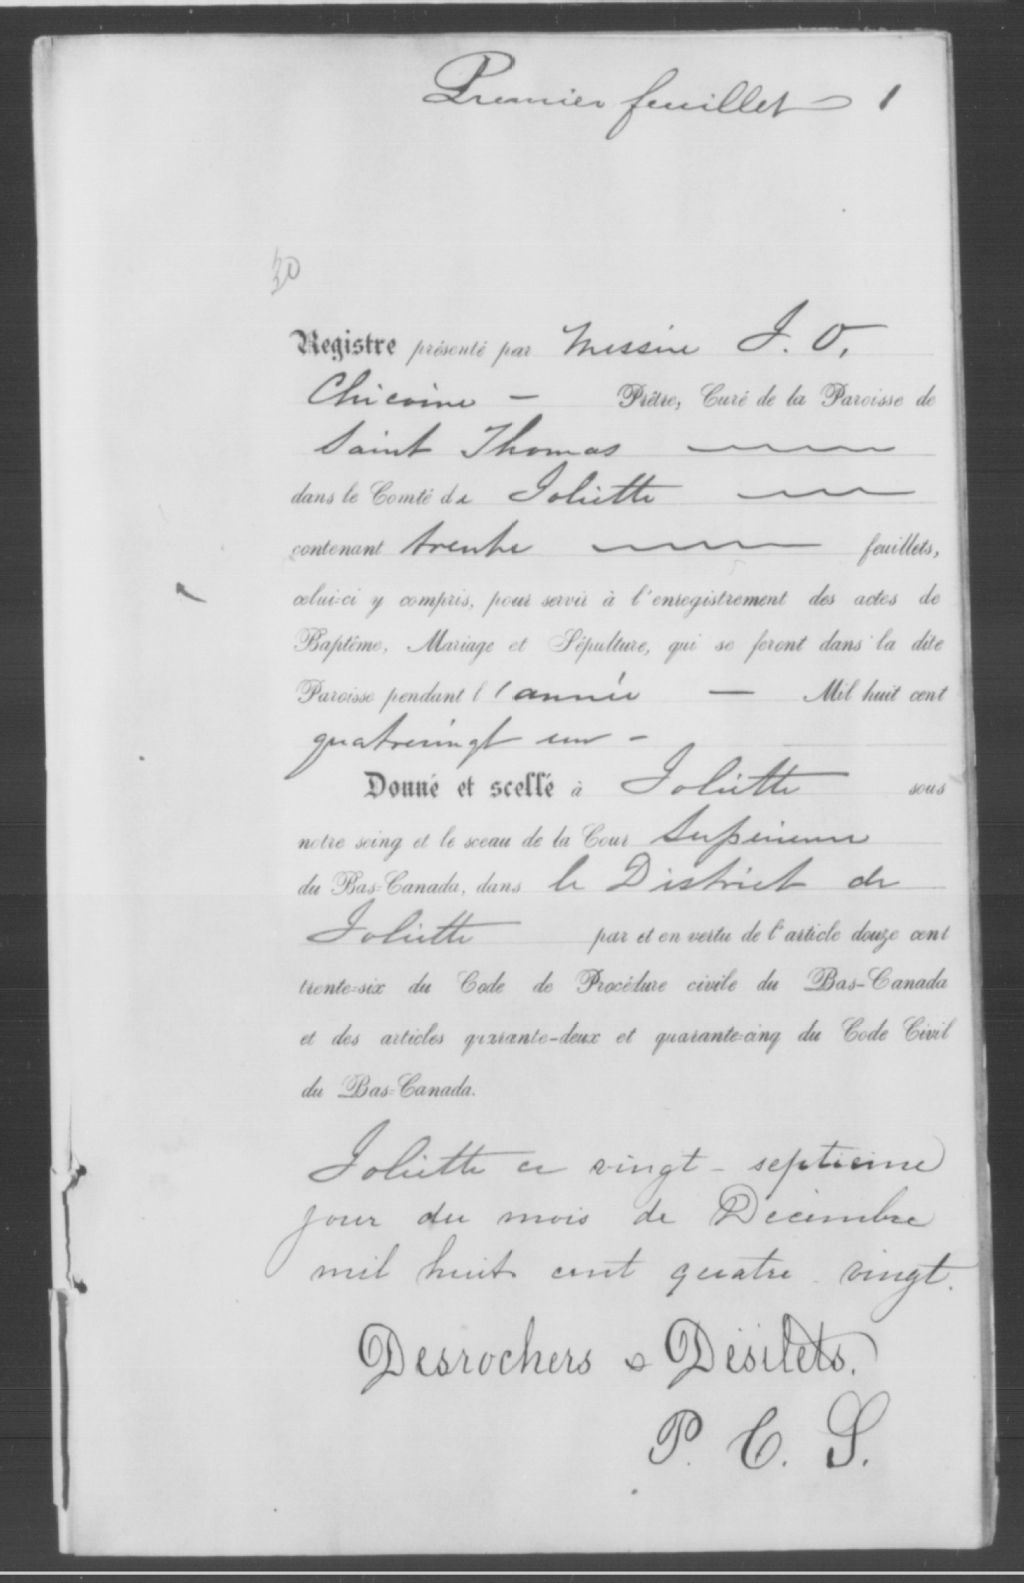 Premier feuillet 1
30
Registre présenté par Messire J. O.
Chicoine — Prêtre, Curé de la Paroisse de
Saint Thomas
dans le Comté de Joliette
contenant trente feuillets,
celui-ci y compris, pour servir à l'enregistrement des actes de
Baptême, Mariage et Sépulture, qui se feront dans la dite
Paroisse pendant l'année — Mil huit cent
quatrevingt un -
Donné et scellé à Joliette sous
notre seing et le sceau de la Cour Supérieure
du Bas-Canada, dans le District de
Joliette par et en vertu de l'article douze cent
trente-six du Code de Procédure civile du Bas-Canada
et des articles quarante-deux et quarante-cinq du Code Civil
du Bas-Canada.
Joliette ce vingt-septième
jour du mois de Décembre
mil huit cent quatre vingt.
Desrochers & Désilets.
P. C. S.